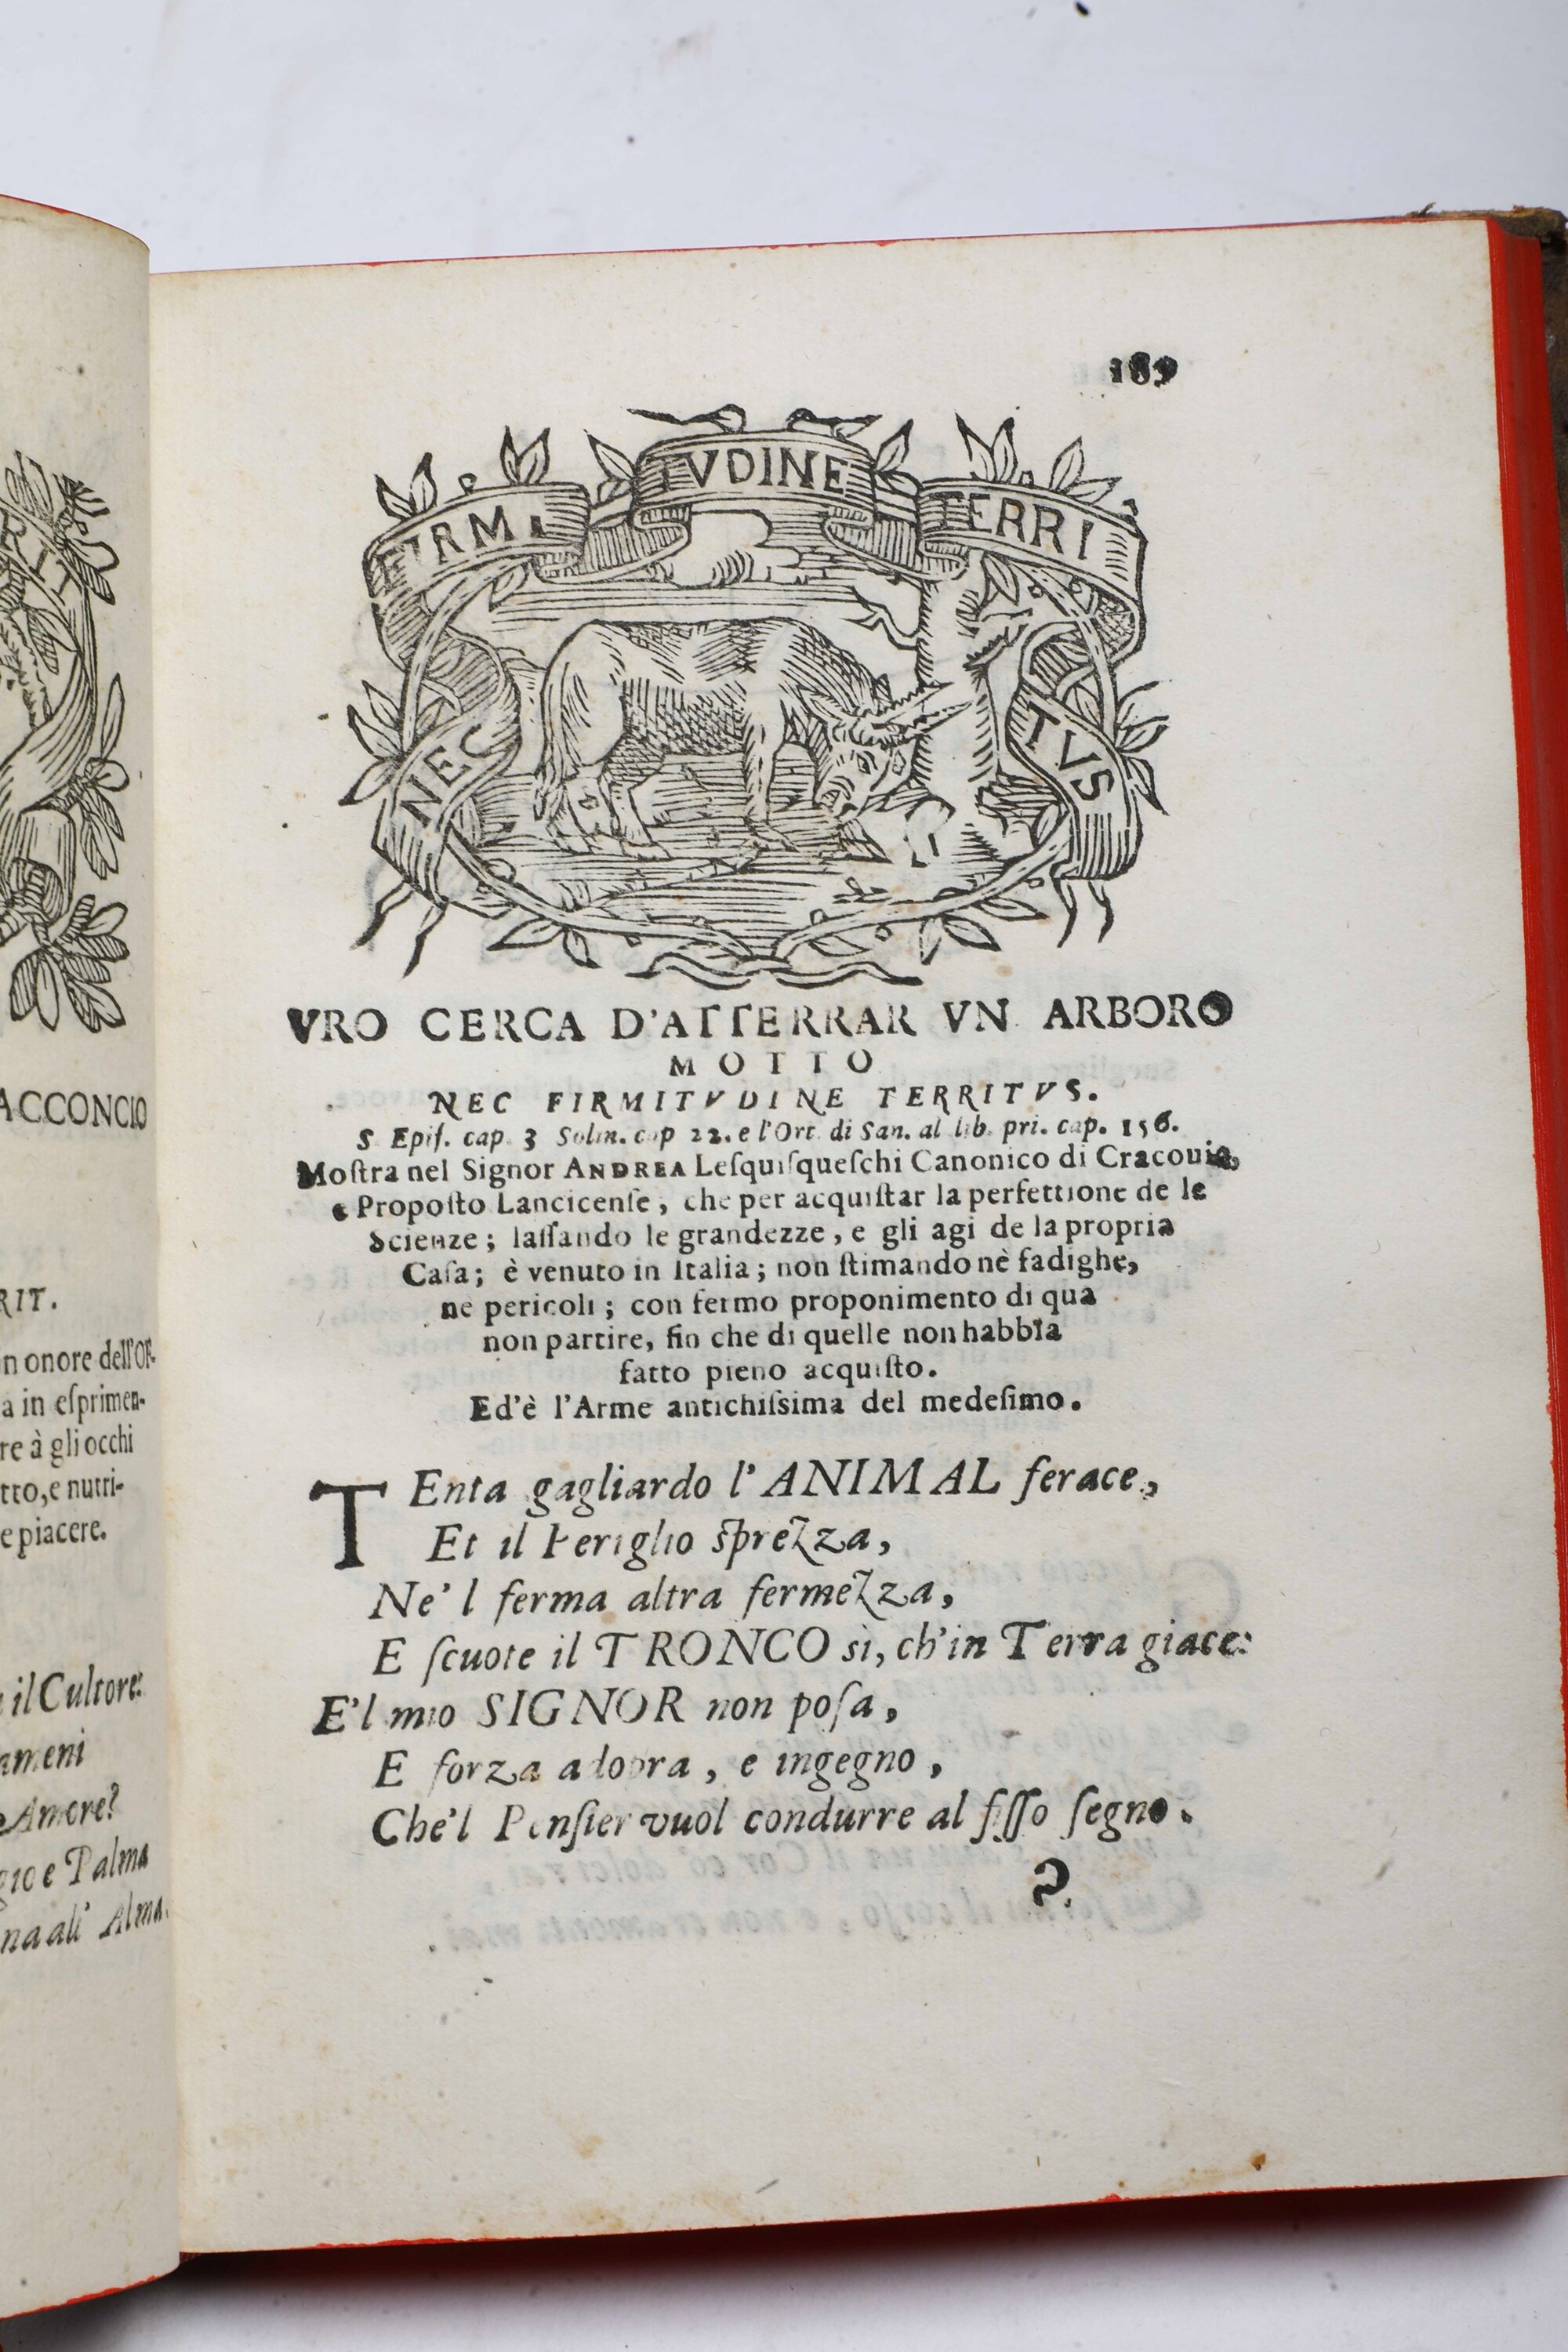 189
NEC FIRMI TVDINE TERRI TVS
VRO CERCA D'ATTERRAR VN ARBORO
MOTTO
NEC FIRMITVDINE TERRITVS.
S. Epif. cap. 3 Solin. cap 22. e l'Ort. di San. al lib. pri. cap. 156.
Moſtra nel Signor ANDREA Leſquiſqueſchi Canonico di Cracouia,
e Propoſto Lancicenſe, che per acquiſtar la perfettione de le
Scienze; laſſando le grandezze, e gli agi de la propria
Caſa; è venuto in Italia; non ſtimando nè fadighe,
ne pericoli; con fermo proponimento di qua
non partire, fin che di quelle non habbia
fatto pieno acquiſto.
Ed'è l'Arme antichiſsima del medeſimo.
TEnta gagliardo l'ANIMAL ferace,
Et il Periglio ſprezza,
Ne'l ferma altra fermezza,
E ſcuote il TRONCO sì, ch'in Terra giace:
E'l mio SIGNOR non poſa,
E forza adopra, e ingegno,
Che'l Penſier vuol condurre al fiſſo ſegno.
ACCONCIO
RIT.
n onore dell'OR-
a in eſprimen-
re à gli occhi
tto, e nutri-
e piacere.
il Cultore:
ameni
Amore?
gio e Palma
na all' Alma.